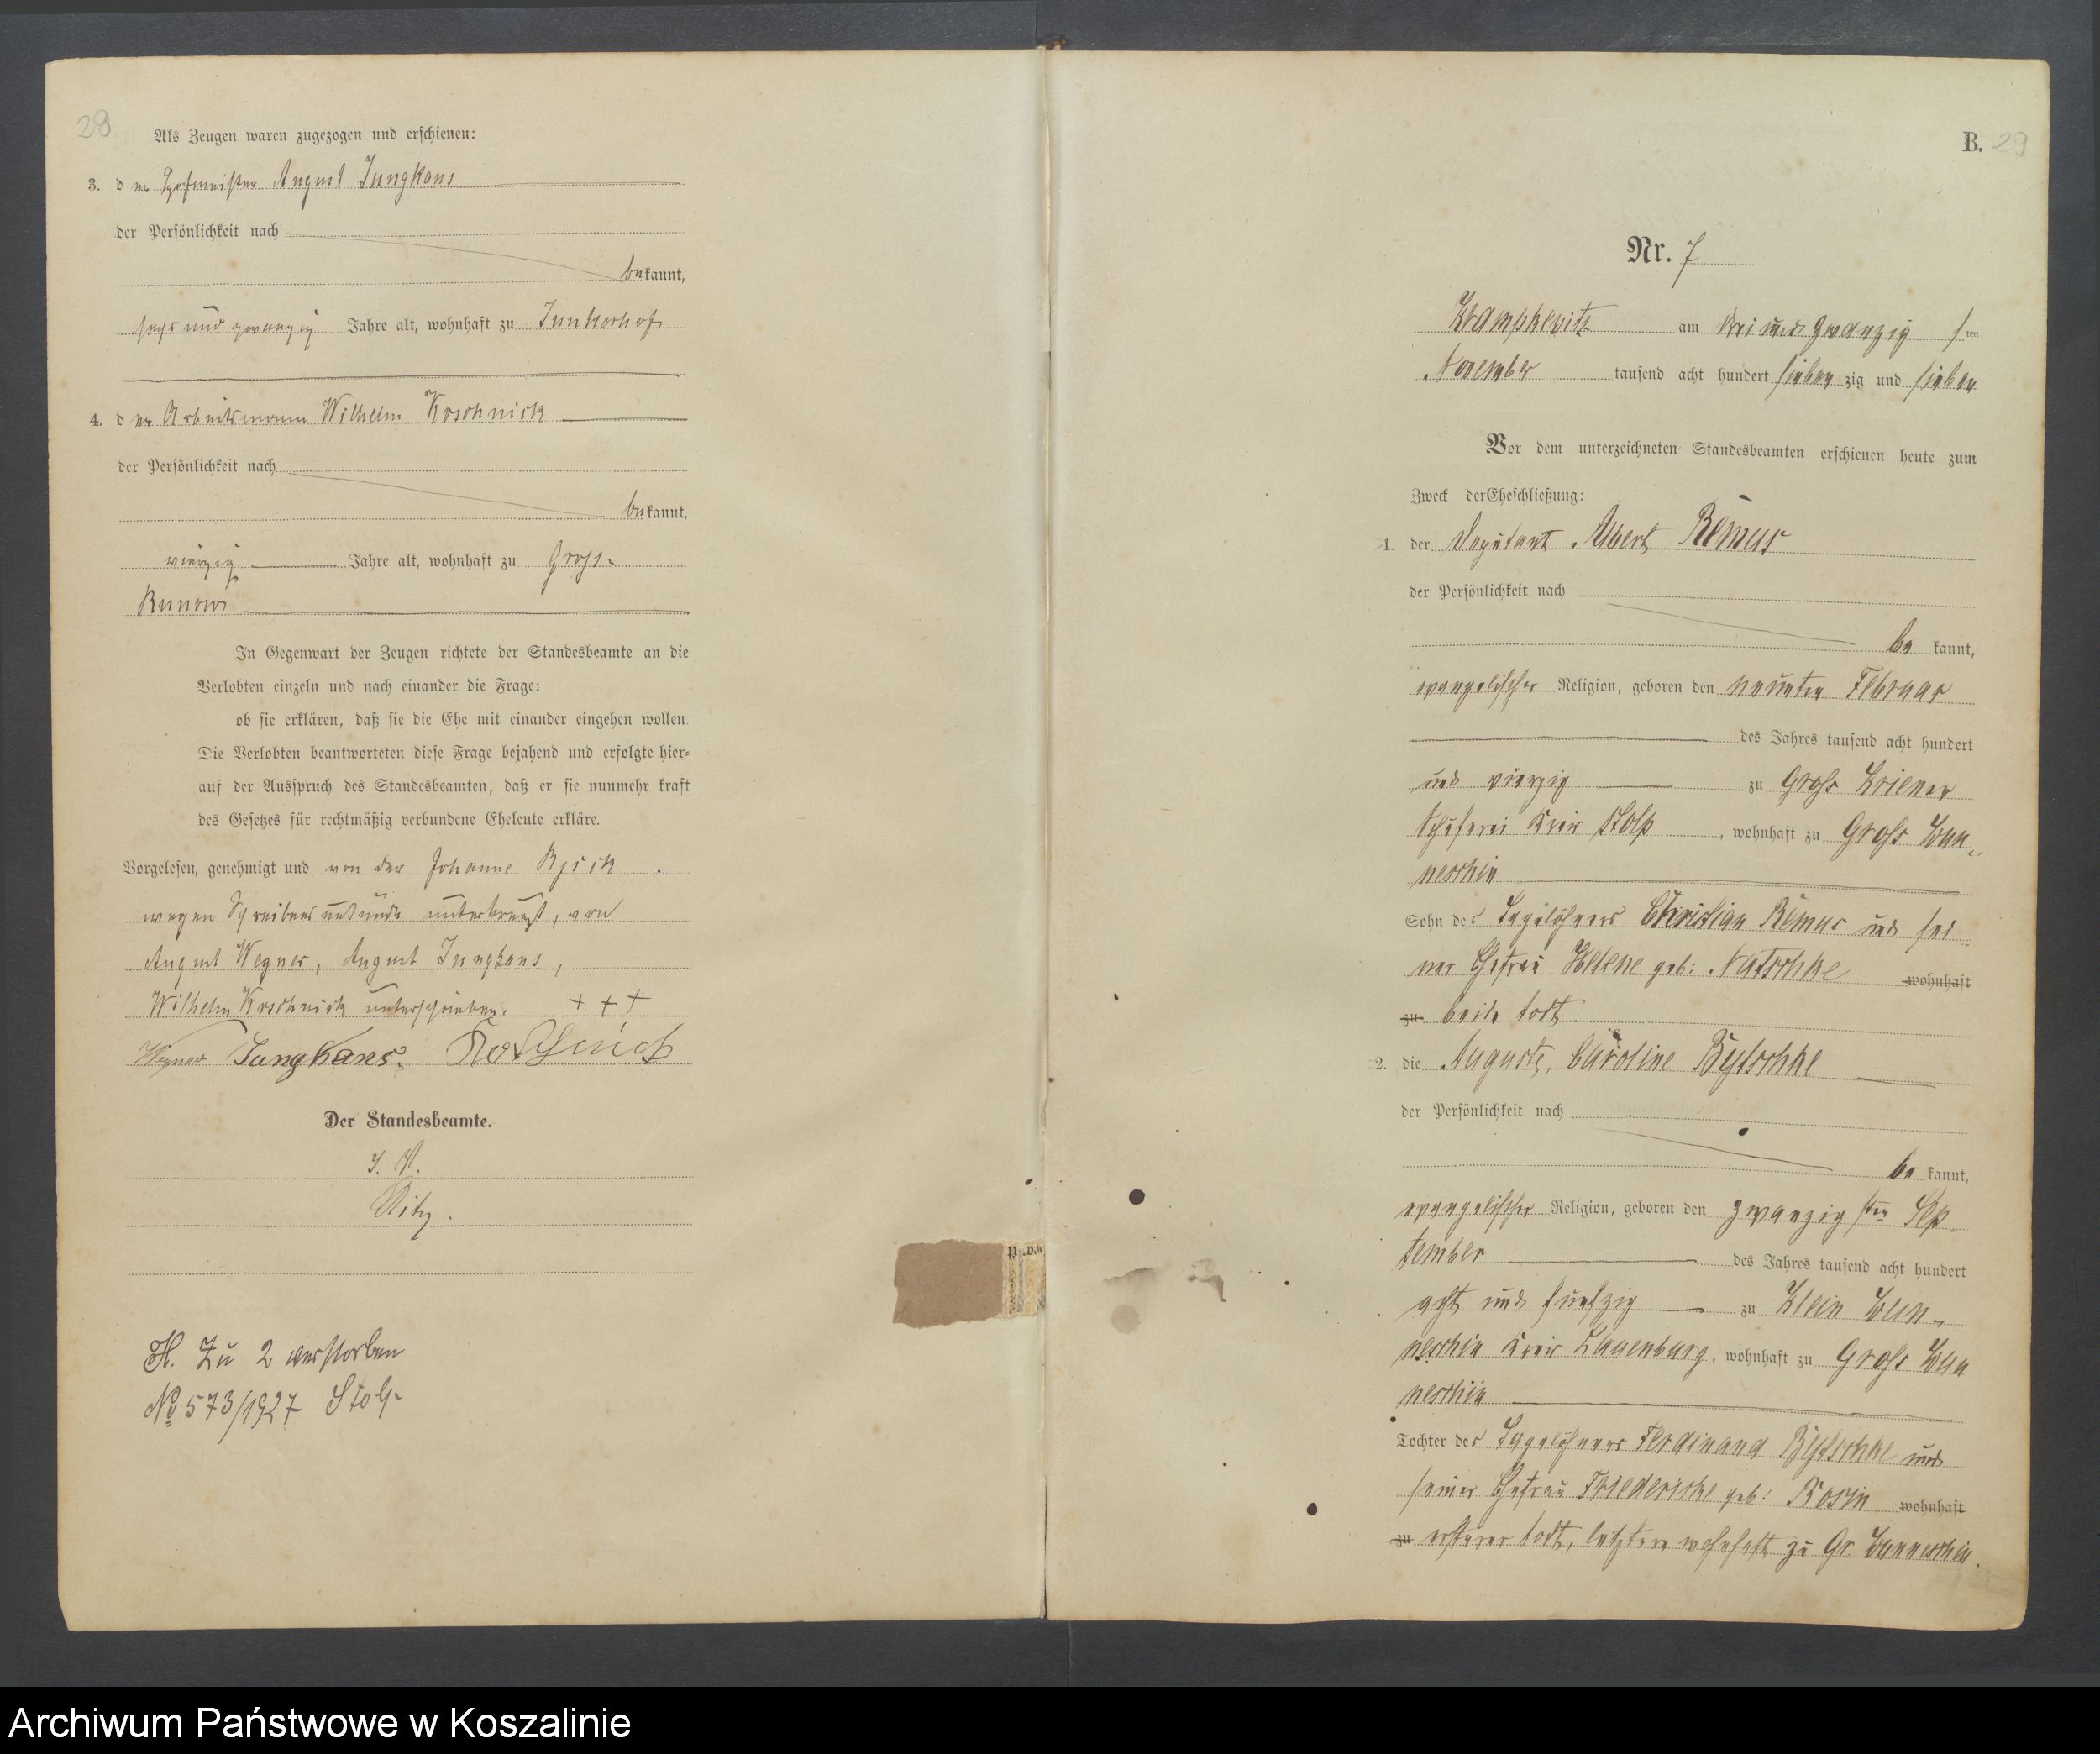 28
Als Zeugen waren zugezogen und erschienen:
3. der Hofmeister August Jungkans
der Persönlichkeit nach
bekannt,
sechs und zwanzig Jahre alt, wohnhaft zu Junkerhof
4. der Arbeitsmann Wilhelm Koschnick
der Persönlichkeit nach
bekannt,
vierzig Jahre alt, wohnhaft zu Gross-
Runow
In Gegenwart der Zeugen richtete der Standesbeamte an die
Verlobten einzeln und nach einander die Frage:
ob sie erklären, daß sie die Ehe mit einander eingehen wollen.
Die Verlobten beantworteten diese Frage bejahend und erfolgte hier-
auf der Ausspruch des Standesbeamten, daß er sie nunmehr kraft
des Gesetzes für rechtmäßig verbundene Eheleute erkläre.
Vorgelesen, genehmigt und von der Johanne
wegen Schreibensunkunde unterkreuzt, von
August Wegner, August Jungkans,
Wilhelm Koschnick unterschrieben. + + +
Wegner Jungkans. Koschnick
Der Standesbeamte.
I. V.
H. Zu 2 verstorben
No 573/1927 Stolp
B. 29
Nr. 7
Krampkewitz am drei und zwanzig sten
November tausend acht hundert sieben zig und sieben
Vor dem unterzeichneten Standesbeamten erschienen heute zum
Zweck der Eheschließung:
1. der Deputant Albert Remus
der Persönlichkeit nach
be kannt,
evangelischer Religion, geboren den neunten Februar
des Jahres tausend acht hundert
und vierzig zu Gross Kriener
Schäferei Kreis Stolp, wohnhaft zu Gross Wun-
neschin
Sohn des Tagelöhners Christian Remus und sei-
ner Ehefrau Helene geb: Natschke wohnhaft
zu beide todt.
2. die Auguste, Caroline Bytschke
der Persönlichkeit nach
be kannt,
evangelischer Religion, geboren den zwanzigsten Sep-
tember des Jahres tausend acht hundert
acht und funfzig zu Klein Wun-
neschin Kreis Lauenburg, wohnhaft zu Gross Wun
neschin
Tochter des Tagelöhners Ferdinand Bytschke und
seiner Ehefrau Friedericke geb: Rosin wohnhaft
zu ersterer todt, letztere wohnhaft zu Gr. Wunneschin.
Archiwum Państwowe w Koszalinie